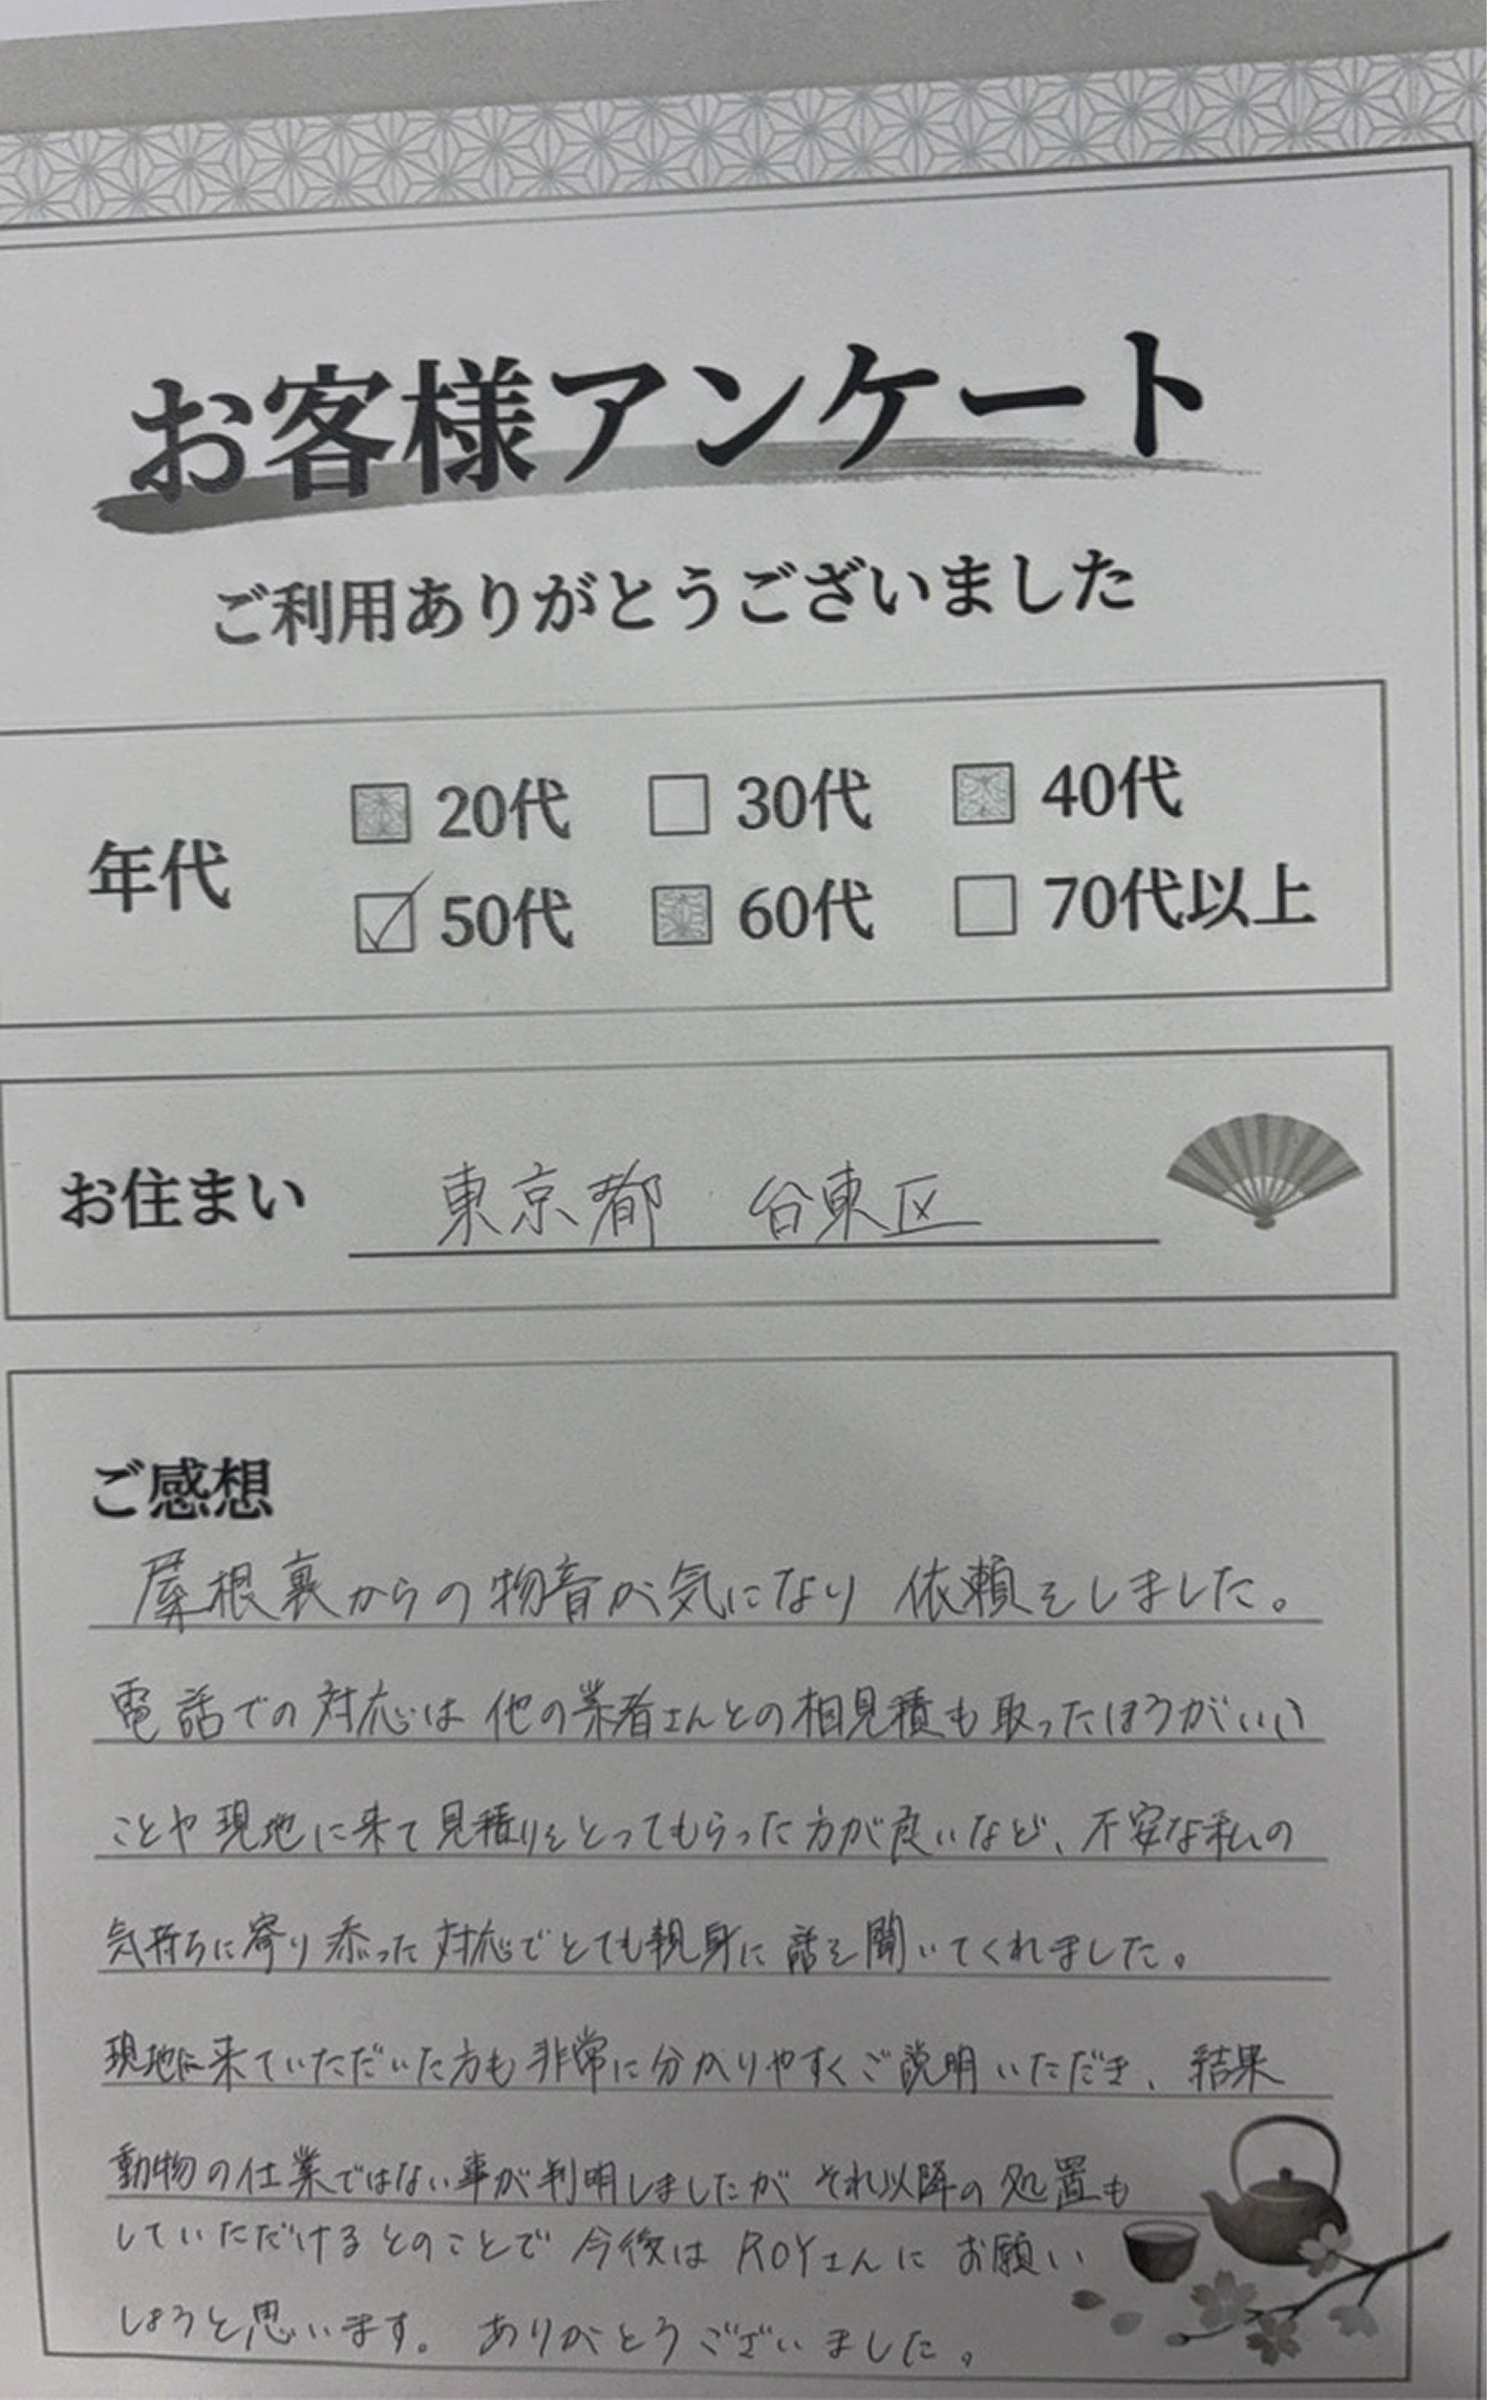 お客様アンケート
ご利用ありがとうございました
年代
20代 30代 40代
50代 60代 70代以上
お住まい 東京都 台東区
ご感想
屋根裏からの物音が気になり 依頼をしました。
電話での対応は 他の業者さんとの相見積も取ったほうがいい
ことや現地に来て見積りをとってもらった方が良いなど、不安な私の
気持ちに寄り添った対応でとても親身に話を聞いてくれました。
現地に来ていただいた方も非常に分かりやすくご説明いただき、結果
動物の仕業ではない事が判明しましたが それ以降の処置も
していただけるとのことで 今後は ROYさんに お願い
しようと思います。 ありがとうございました。